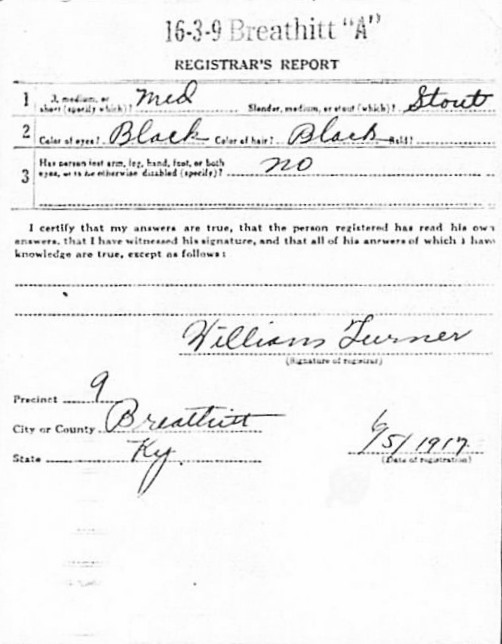 16-3-9 Breathitt "A"
REGISTRAR'S REPORT
1 medium, or short (specify which)? Med Slender, medium, or stout (which)? Stout
2 Color of eyes? Black Color of hair? Black Bald?
3 Has person lost arm, leg, hand, foot, or both
eyes, or is he otherwise disabled (specify)? no
I certify that my answers are true, that the person registered has read his own
answers, that I have witnessed his signature, and that all of his answers of which I have
knowledge are true, except as follows:
William Turner
(Signature of registrar)
Precinct 9
City or County Breathitt
State Ky.
6/5/1917
(Date of registration)